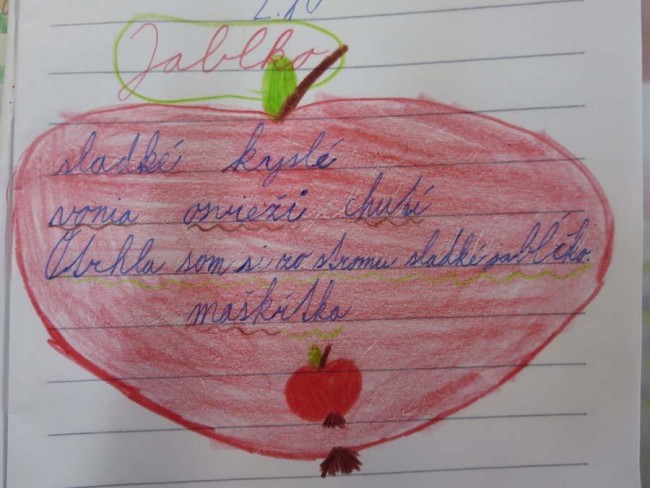 Jablko
sladké kyslé
vonia osvieži chutí
Otrhla som si zo stromu sladké jabĺčko.
maškŕtka